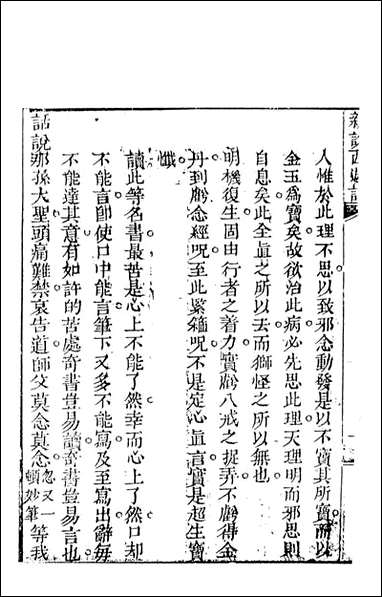 新說西遊記
人惟於此理不思以致邪念動發是以不寶其所寶而以
金玉為寶矣故欲治此病必先思此理天理明而邪思則
自息矣此全眞之所以去而獅怪之所以無也
明機復生固由行者之着力實虧八戒之捉弄不虧得金
丹到虧念經呪至此緊箍呪不是定心眞言實是超生寶
懺
讀此等名書最苦是心上不能了然幸而心上了然口却
不能言卽使口中能言筆下又多不能寫及至寫出辭每
不能達其意有如許的苦處奇書豈易讀奇書豈易言也
話說那孫大聖頭痛難禁哀告道師父莫念莫念忽又一頓妙筆等我